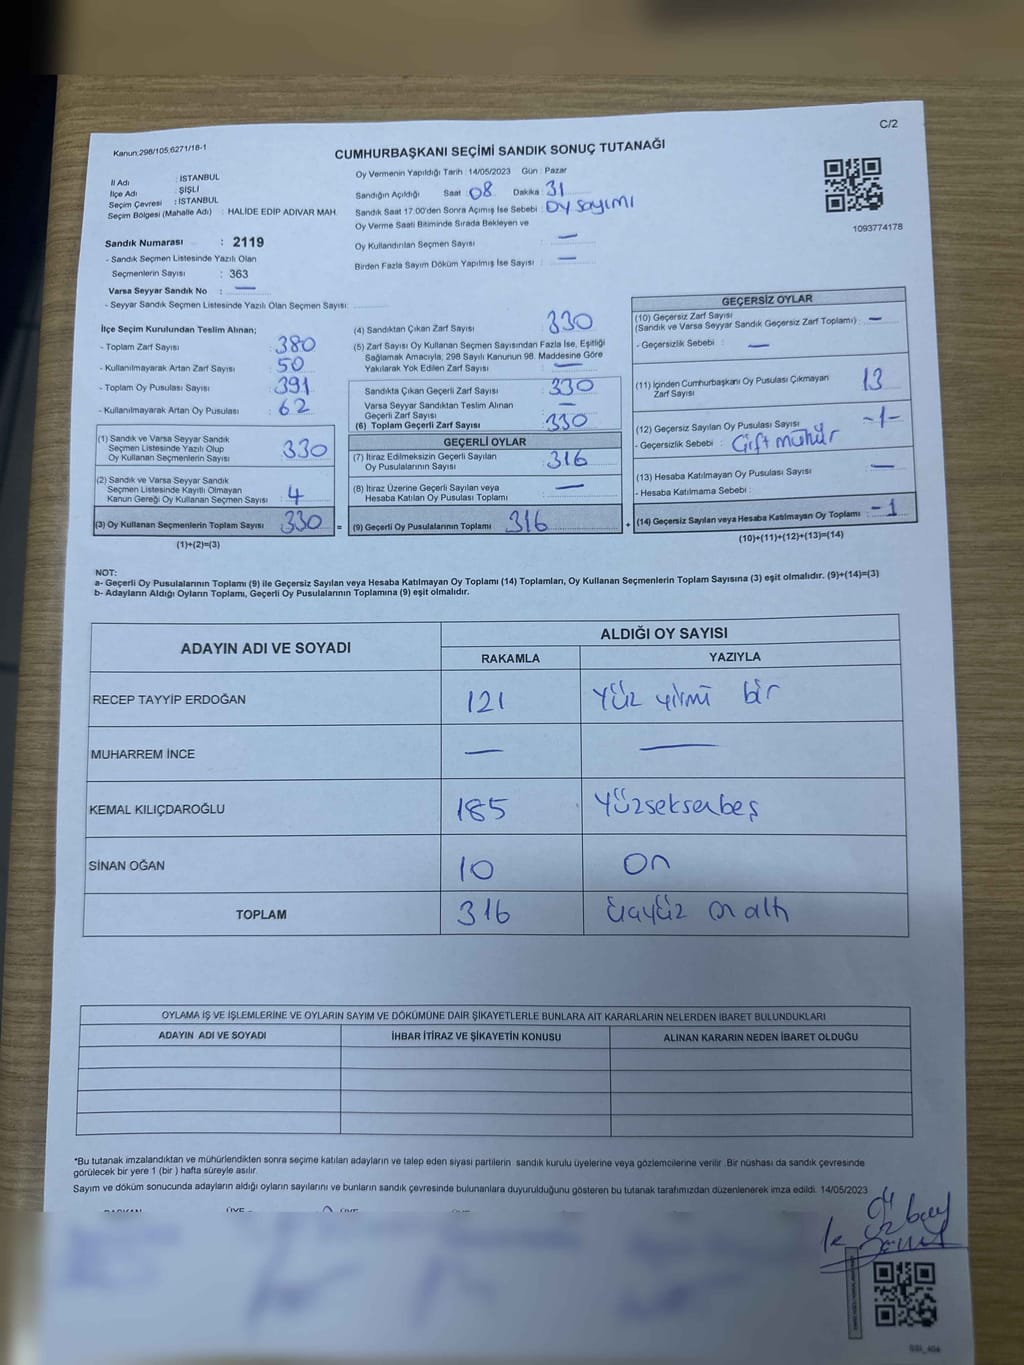 C/2
Kanun:298/105,6271/18-1
CUMHURBAŞKANI SEÇİMİ SANDIK SONUÇ TUTANAĞI
İl Adı : İSTANBUL
İlçe Adı : ŞİŞLİ
Seçim Çevresi : İSTANBUL
Seçim Bölgesi (Mahalle Adı) : HALİDE EDİP ADIVAR MAH.
Sandık Numarası : 2119
- Sandık Seçmen Listesinde Yazılı Olan
Seçmenlerin Sayısı : 363
Varsa Seyyar Sandık No : —
- Seyyar Sandık Seçmen Listesinde Yazılı Olan Seçmen Sayısı:
Oy Vermenin Yapıldığı Tarih : 14/05/2023 Gün : Pazar
Sandığın Açıldığı Saat : 08 Dakika : 31
Sandık Saat 17:00'den Sonra Açımış İse Sebebi : Oy sayımı
Oy Verme Saati Bitiminde Sırada Bekleyen ve
Oy Kullandırılan Seçmen Sayısı : —
Birden Fazla Sayım Döküm Yapılmış İse Sayısı : —
1093774178
İlçe Seçim Kurulundan Teslim Alınan;
- Toplam Zarf Sayısı : 380
- Kullanılmayarak Artan Zarf Sayısı : 50
- Toplam Oy Pusulası Sayısı : 391
- Kullanılmayarak Artan Oy Pusulası : 62
(1) Sandık ve Varsa Seyyar Sandık
Seçmen Listesinde Yazılı Olup
Oy Kullanan Seçmenlerin Sayısı : 330
(2) Sandık ve Varsa Seyyar Sandık
Seçmen Listesinde Kayıtlı Olmayan
Kanun Gereği Oy Kullanan Seçmen Sayısı : 4
(3) Oy Kullanan Seçmenlerin Toplam Sayısı : 330 =
(1)+(2)=(3)
(4) Sandıktan Çıkan Zarf Sayısı : 330
(5) Zarf Sayısı Oy Kullanan Seçmen Sayısından Fazla İse, Eşitliği
Sağlamak Amacıyla, 298 Sayılı Kanunun 98. Maddesine Göre
Yakılarak Yok Edilen Zarf Sayısı : —
Sandıkta Çıkan Geçerli Zarf Sayısı : 330
Varsa Seyyar Sandıktan Teslim Alınan
Geçerli Zarf Sayısı : —
(6) Toplam Geçerli Zarf Sayısı : 330
GEÇERLİ OYLAR
(7) İtiraz Edilmeksizin Geçerli Sayılan
Oy Pusulalarının Sayısı : 316
(8) İtiraz Üzerine Geçerli Sayılan veya
Hesaba Katılan Oy Pusulası Toplamı : —
(9) Geçerli Oy Pusulalarının Toplamı : 316 +
GEÇERSİZ OYLAR
(10) Geçersiz Zarf Sayısı
(Sandık ve Varsa Seyyar Sandık Geçersiz Zarf Toplamı) : —
- Geçersizlik Sebebi : —
(11) İçinden Cumhurbaşkanı Oy Pusulası Çıkmayan
Zarf Sayısı : 13
(12) Geçersiz Sayılan Oy Pusulası Sayısı : -1-
- Geçersizlik Sebebi : Çift mühür
(13) Hesaba Katılmayan Oy Pusulası Sayısı : —
- Hesaba Katılmama Sebebi :
(14) Geçersiz Sayılan veya Hesaba Katılmayan Oy Toplamı : -1
(10)+(11)+(12)+(13)=(14)
NOT:
a- Geçerli Oy Pusulalarının Toplamı (9) ile Geçersiz Sayılan veya Hesaba Katılmayan Oy Toplamı (14) Toplamları, Oy Kullanan Seçmenlerin Toplam Sayısına (3) eşit olmalıdır. (9)+(14)=(3)
b- Adayların Aldığı Oyların Toplamı, Geçerli Oy Pusulalarının Toplamına (9) eşit olmalıdır.
ADAYIN ADI VE SOYADI
ALDIĞI OY SAYISI
RAKAMLA YAZIYLA
RECEP TAYYİP ERDOĞAN 121 Yüz yirmi bir
MUHARREM İNCE — —
KEMAL KILIÇDAROĞLU 185 Yüzseksenbeş
SİNAN OĞAN 10 On
TOPLAM 316 üçyüz on altı
OYLAMA İŞ VE İŞLEMLERİNE VE OYLARIN SAYIM VE DÖKÜMÜNE DAİR ŞİKAYETLERLE BUNLARA AİT KARARLARIN NELERDEN İBARET BULUNDUKLARI
ADAYIN ADI VE SOYADI İHBAR İTİRAZ VE ŞİKAYETİN KONUSU ALINAN KARARIN NEDEN İBARET OLDUĞU
*Bu tutanak imzalandıktan ve mühürlendikten sonra seçime katılan adayların ve talep eden siyasi partilerin sandık kurulu üyelerine veya gözlemcilerine verilir. Bir nüshası da sandık çevresinde
görülecek bir yere 1 (bir ) hafta süreyle asılır.
Sayım ve döküm sonucunda adayların aldığı oyların sayılarını ve bunların sandık çevresinde bulunanlara duyurulduğunu gösteren bu tutanak tarafımızdan düzenlenerek imza edildi. 14/05/2023
BAŞKAN ÜYE ÜYE ÜYE